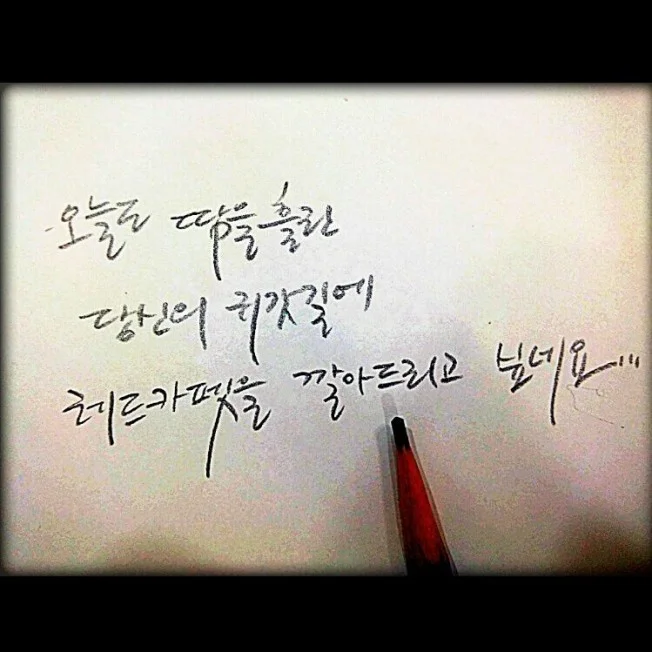 오늘도 땀을 흘린
당신의 귀갓길에
레드카펫을 깔아드리고 싶네요...